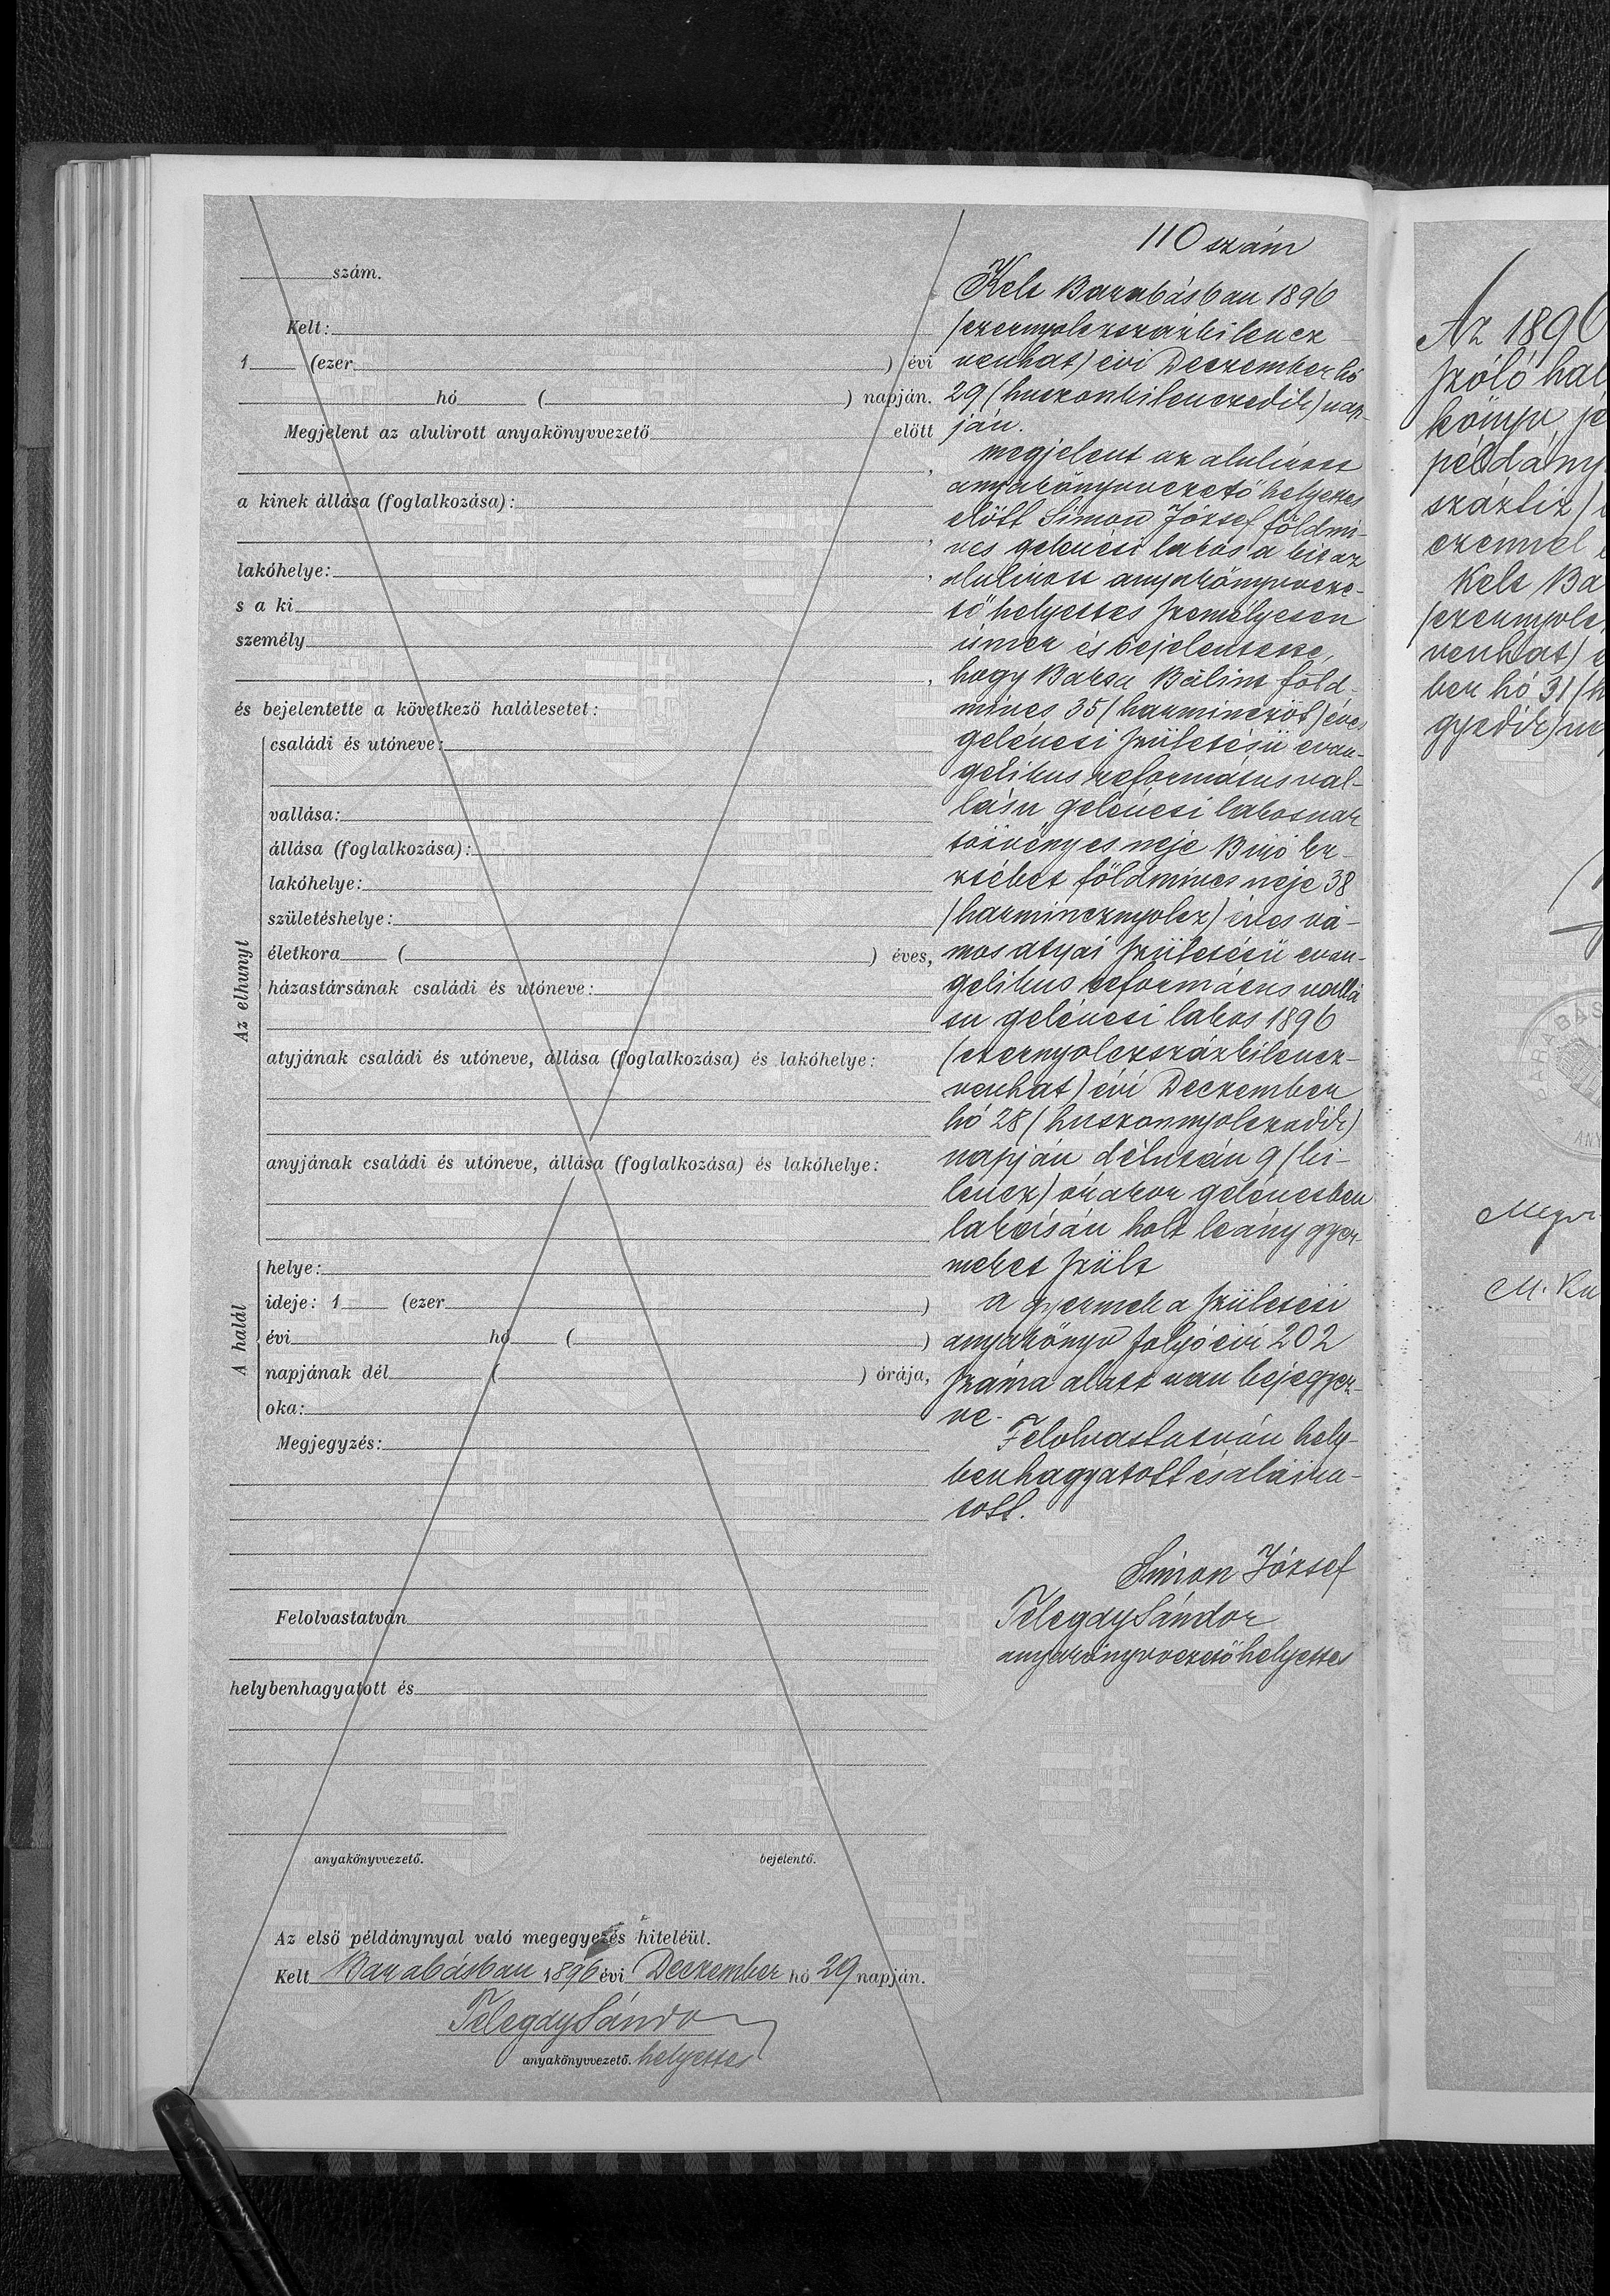 110 szám
szám.
Kelt:
1 (ezer ) évi
hó ( ) napján.
Megjelent az alulirott anyakönyvvezető előtt
,
a kinek állása (foglalkozása):
,
lakóhelye: .
s a ki
személy
,
és bejelentette a következő halálesetet:
Az elhunyt
családi és utóneve:
vallása:
állása (foglalkozása):
lakóhelye:
születéshelye:
életkora ( ) éves,
házastársának családi és utóneve:
atyjának családi és utóneve, állása (foglalkozása) és lakóhelye:
anyjának családi és utóneve, állása (foglalkozása) és lakóhelye:
A halál
helye:
ideje: 1 (ezer )
évi hó ( )
napjának dél ( ) órája,
oka:
Megjegyzés:
Felolvastatván
helybenhagyatott és
anyakönyvvezető. bejelentő.
Az első példánynyal való megegyezés hiteléül.
Kelt Barabásban 1896 évi Deczember hó 29 napján.
Telegdy Sándor
anyakönyvvezető. helyettes
Kelt Barabásban 1896
(ezernyolczszázkilencz
venhat) évi Deczember hó
29 (huszonkilenczedik) nap-
ján.
megjelent az alulirott
anyakönyvvezető helyettes
előtt Simon József földmi-
ves gelénesi lakos a kit az
alulirott anyakönyvveze-
tő helyettes személyesen
ismer és bejelentette,
hogy Baksa Bálint föld-
mives 35 (harminczöt) éves
gelénesi születésü evan-
gelikus református val-
lásu gelénesi lakosnak
törvényes neje Biró Er-
zsébet földmives neje 38
(harmincznyolcz) éves vá-
mosatyai születésü evan-
gelikus református vallá
su gelénesi lakos 1896
(ezernyolczszázkilencz-
venhat) évi Deczember
hó 28 (huszonnyolczadik)
napján délután 9 (ki-
lencz) órakor gelénesben
lakásán holt leány gyer-
meket szült
a gyermek a születési
anyakönyv folyó évi 202
száma alatt van bejegyez-
ve.
Felolvastatván hely-
benhagyatott és aláira-
tott.
Simon József
Telegdy Sándor
anyakönyvvezető helyettes
Az 1896
szóló hal
könyv, je
példány
száztiz)
ezennel
Kelt Ba
(ezernyolc
venhat) é
ber hó 31 (h
gyedik) na